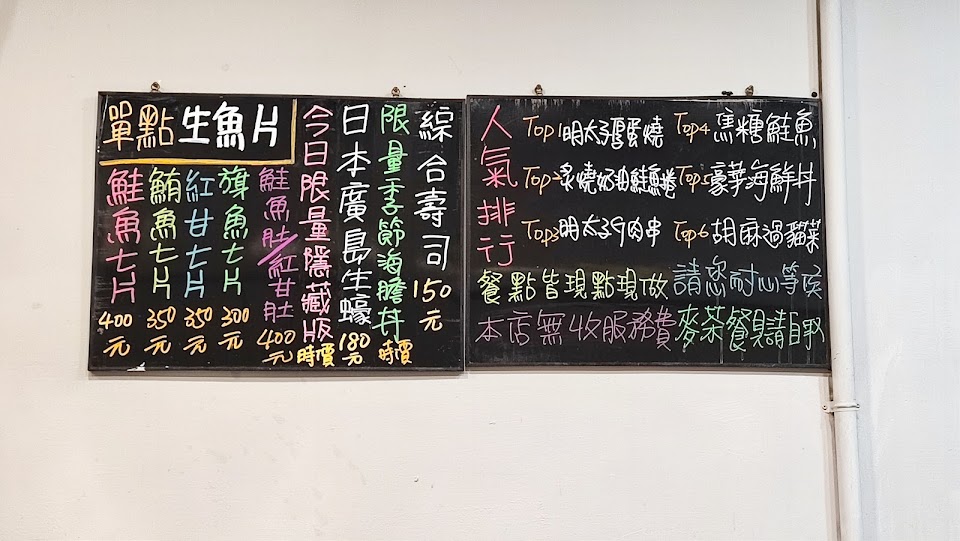 單點生魚片
鮭魚七片 400元
鮪魚七片 350元
紅甘七片 350元
旗魚七片 300元
鮭魚肚/紅甘肚 400元
今日限量隱藏版 時價
日本廣島生蠔 180元
限量季節海膽丼 時價
綜合壽司 150元
人氣排行
Top1明太子蛋燒
Top2炙燒奶油鮭魚捲
Top3明太子肉串
Top4焦糖鮭魚
Top5豪華海鮮丼
Top6胡麻過貓菜
餐點皆現點現做 請您耐心等候
本店無收服務費 麥茶餐具請自取